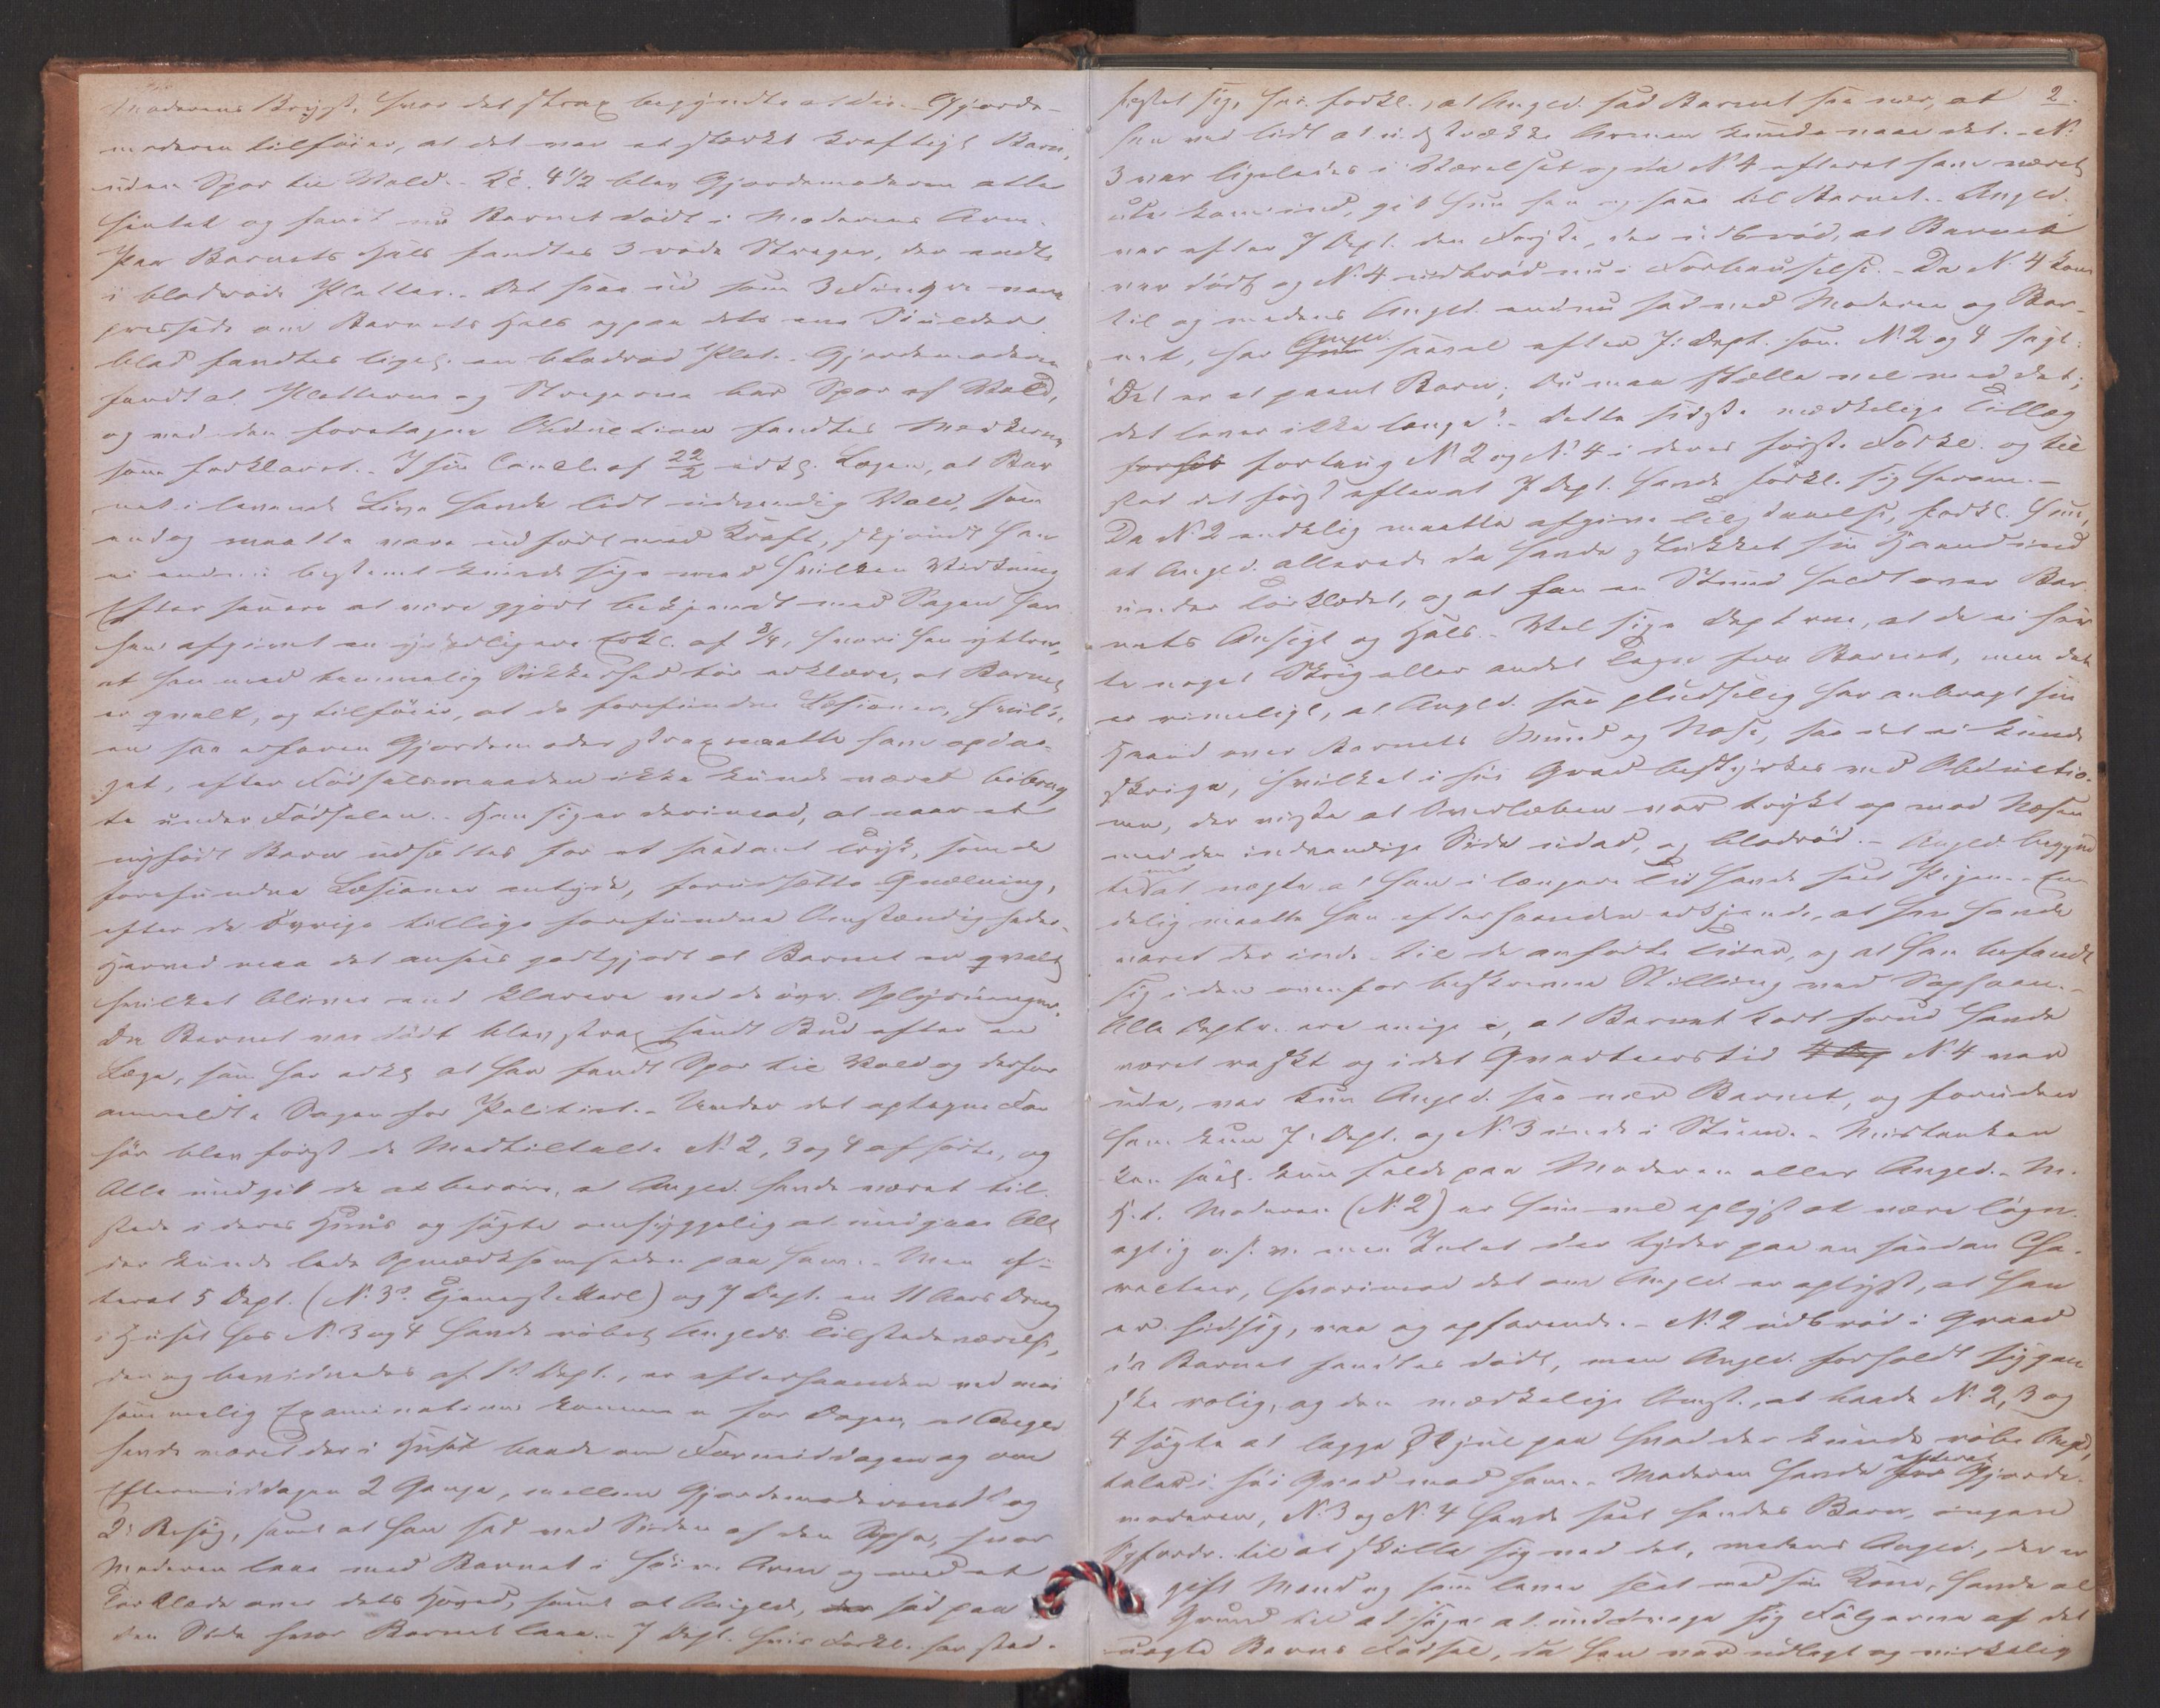 Moderens Bryst, hvor det strax begyndte at die. Gjorde-
moderen tilföier, at det var et stærkt kraftigt Barn,
uden Spor til Vold. Kl. 4 1/2 blev Gjordemoderen atter
hentet og fandt nu Barnet dödt i Moderens Arm.
Paa Barnets Hals fandtes 3 röde Streger, der endte
i blodröde Pletter. Det saa ud som 3 Fingre vare
pressede om Barnets Hals og paa dets ene Skulder-
blad fandtes ligel. en blodröd Plet. Gjordemoderen
fandt at Pletterne og Stregerne bar Spor af Vold,
og ved den foretagne Obduction fandtes Mærkerne
som forklaret. I sin Concl. af 22/2 erkl. Lægen, at Bar
net i levende Live havde lidt udvendig Vold, som
endog maatte være udfört med Kraft, skjöndt han
ei endnu bestemt kunde sige med hvilken Virkning
Efter senere at være gjort bekjendt med Sagen har
han afgivet en yderligere Erkl. af 8/4, hvori han yttrer,
at han med temmelig Sikkerhed tör erklære, at Barnet
er qvalt, og tilföier, at de forefundne Læsioner, hvilke
en saa erfaren Gjordemoder strax maatte have opda-
get, efter Födselsmaaden ikke kunde været bibrag
te under Födselen. Han siger derimod, at naar et
nyfödt Barn udsættes for et saadant Tryk, som de
forefundne Læsioner antyde, forudsætte Qvælning,
efter de övrige tillige forefundne Omstændigheder.
Herved maa det ansees godtgjort at Barnet er qvalt
hvilket bliver end klarere ved de övr. Oplysninger.
Da Barnet var dödt blev strax sendt Bud efter en
Læge, som har erkl. at han fandt Spor til Vold og derfor
anmeldte Sagen for Politiet. Under det optagne For
hör blev först de Medtiltalte No 2, 3 og 4 afhörte, og
Alle undgik de at berøre, at Angld. havde været til
stede i deres Huus og sögte omhyggelig at undgaae Alt
der kunde lede Opmærksomheden paa ham. Men ef-
terat 5 Dept. (No 3s Tjenestekarl) og 7 Dept. en 11 Aars Dreng
i Huset hos No 3 og 4 havde röbet Anglds Tilstedeværelse,
der og bevidnedes af 1st Dept., er efterhaanden ved møi
sommelig Examination kommen for Dagen, at Angld
havde været der i Huset baade om Formiddagen og om
Eftermiddagen 2 Gange, mellem Gjordemoderens 1st og
2t Besög, samt at han sad ved Siden af den Sopha, hvor
Moderen laae med Barnet i höire Arm og med et
Törklæde over dets Hoved, samt at Angld. der sad paa
den Side hvor Barnet laae. 7 Dept. hvis Forkl. har stad-
2.
fæstet sig, har forkl., at Angld. sad Barnet saa nær, at
han ved lidt at udstrække Armen kunde naae det. No
3 var ligeledes i Værelset og da No 4 efterat have været
ude kom ind, gik hun hen og saae til Barnet. Angld.
var efter 7 Dept. den Förste, der udbröd, at Barnet
var dödt og No 4 udbröd nu i Forbauselse. Da No 4 kom
til og medens Angld. endnu sad ved Moderen og Bar-
net, har Angld. saavel efter 7. Dept. som No 2 og 4 sagt:
"Det er et pænt Barn; Du maa stelle vel med det;
det lever ikke længe". Dette sidste mærkelige Tillæg
forsøt fortaug No 2 og No 4 i deres förste Forkl. og til
stod det först efterat 7 Dept. havde forkl. sig herom.
Da No 2 endelig maatte afgive Tilstaaelse, forkl. hun,
at Angld. allerede da havde stukket sin Haand ind
under Törklædet, og at han en Stund holdt over Bar
nets Ansigt og Hals. Vel sige Depterne, at de ei hör
te noget Skrig eller andet Tegn fra Barnet, men det
er rimeligt, at Angld. saa pludselig har anbragt sin
Haand over Barnets Mund og Næse, saa det ei kunde
skrige, hvilket i höi Grad bestyrkes ved Obductio-
nen, der viste at Overlæben var trykt op mod Næsen
med den indvendige Side udad, og blodröd. Angld. begynd
te med at negte at han i længere Tid havde seet Pigen. En
delig maatte han efterhaanden erkjende, at han havde
været der inde til de anførte Tider, og at han befandt
sig i den ovenfor beskrevne Stilling ved Sophaen.
Alle Deptr. ere enige i, at Barnet kort forud havde
været raskt og i det Qvarteerstid 4 Dep No 4 var
ude, var kun Angld. saa nær Barnet, og foruden
ham kun 7. Dept. og No 3 inde i Stuen. Mistanken
kan saal. kun falde paa Moderen eller Angld. M.
H. t. Moderen (No 2) er hun vel oplyst at være lögn-
agtig o. s. v. men Intet der tyder paa en saadan Cha-
racteer, hvorimod det om Angld. er oplyst, at han
er hidsig, raa og opfarende. No 2 udbröd i Graad
da Barnet fandtes dödt, men Angld. forholdt sig gan
ske rolig, og den mærkelige Omst., at baade No 2, 3 og
4 sögte at lægge Skjul paa hvad der kunde röbe Angld,
taler i höi Grad mod ham. Moderen havde efter Gjorde-
moderen, No 3 og No 4 havde seet hendes Barn, ingen
Opfordr. til at skille sig ved det, medens Angld., der er
gift Mand og som lever slet med sin Kone, havde al
Grund til at söge at unddrage sig Fölgerne af det
uægte Barns Födsel, da han var udlagt og virkelig